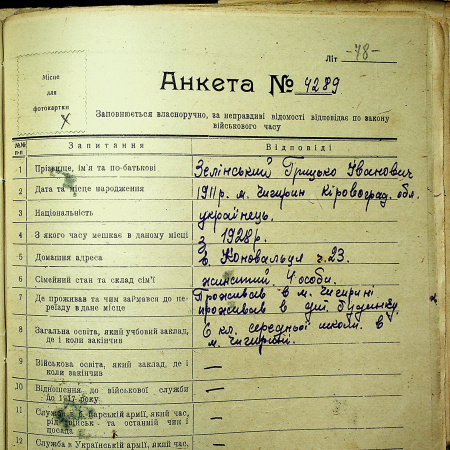 Літ -78-
Місце
для
фотокартки
Х
Анкета № 4289
Заповнюється власноручно, за неправдиві відомості відповідає по закону
військового часу
№№ п-п Запитання Відповіді
1 Прізвище, ім'я та по-батькові Зелінський Грицько Іванович
2 Дата та місце народження 1911 р. м. Чигирин Кіровоград. обл.
3 Національність українець.
4 З якого часу мешкає в даному місці з 1928 р.
5 Домашня адреса в. Коновальця ч. 23.
6 Сімейний стан та склад сім'ї 4 особи.
7 Де проживав та чим займався до пе- Проживав в м. Чигирині
реїзду в дане місце проживав в будинку.
8 Загальна освіта, який учбовий заклад, 6 кл. середньої школи. в
де і коли закінчив м. Чигирині.
9 Військова освіта, який заклад, де і —
коли закінчив
10 Відношення до військової служби —
до 1917 року
11 Служба в б. царській армії, який час, —
рід військ та останній чин і
посада
12 Служба в Українській армії, який час, —